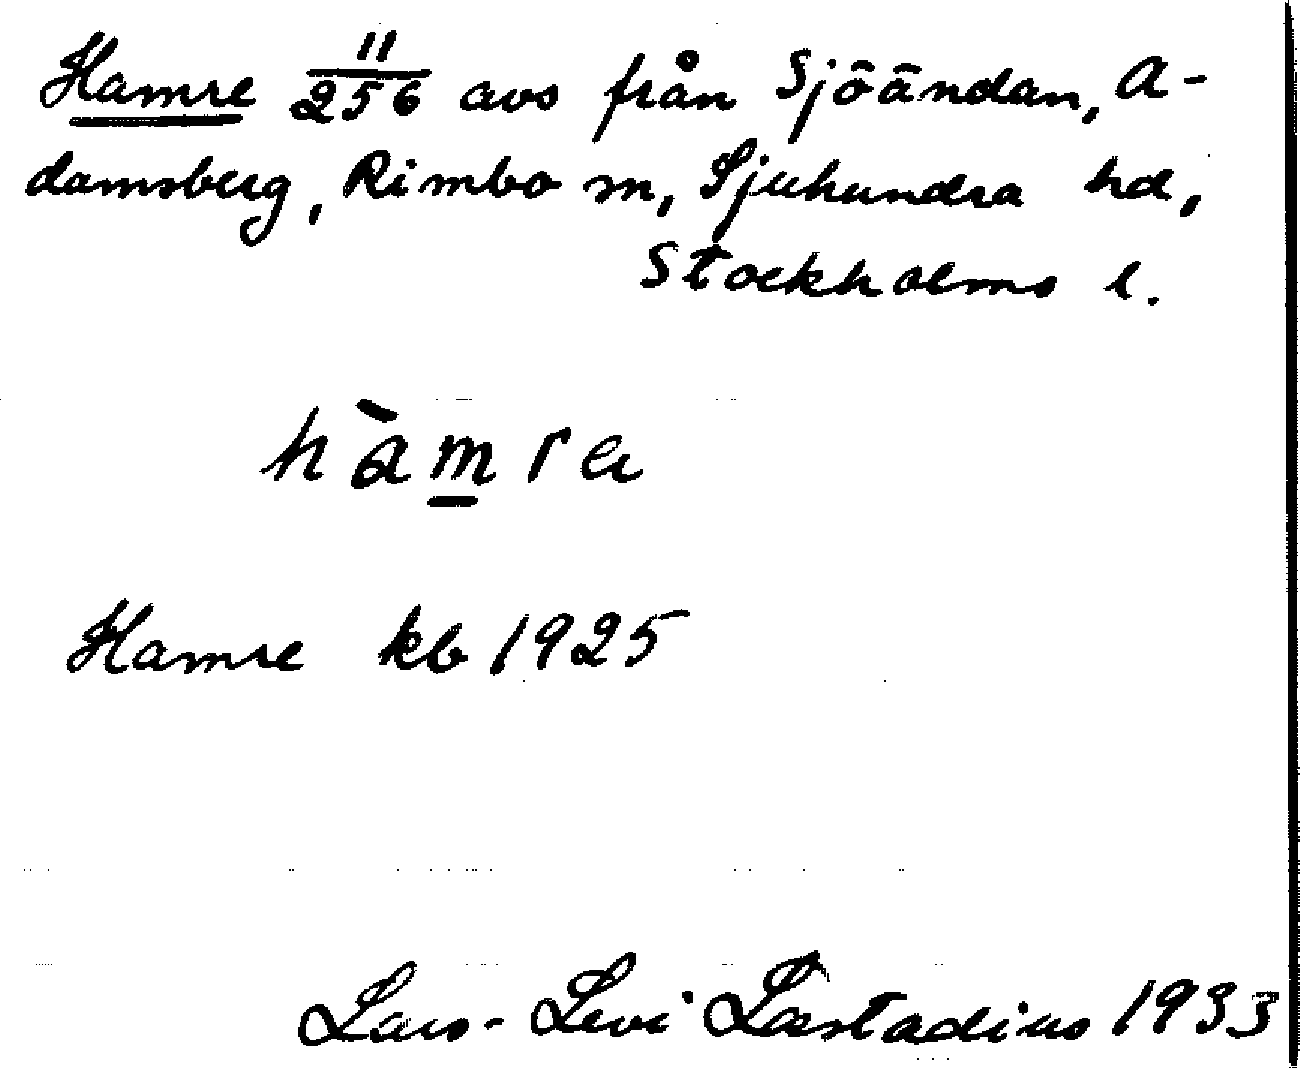 Hamre 11/256 avs från Sjöändan, A-
damsberg, Rimbo sn, Sjuhundra hd,
Stockholms l.
hàmra
Hamre kb 1925
Lars-Levi Læstadius 1933